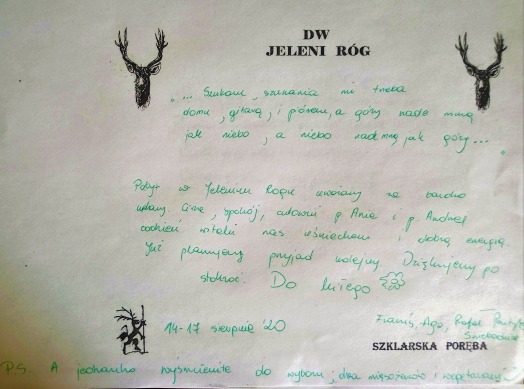 DW
JELENI RÓG
"... Szukam, szukania mi trzeba
domu, gitarą i piórem, a góry nade mną
jak niebo, a niebo nade mną jak góry..."
Pobyt w Jelenim Rogu uważamy za bardzo
udany. Cisza, spokój, cudowni p. Ania i p. Andrzej
codzień witali nas uśmiechem i dobrą energią.
Już planujemy przyjazd kolejny. Dziękujemy po
stokroć. Do lutego
14-17 sierpnia '20
Franiś, Aga, Rafał
SZKLARSKA PORĘBA
P.S. A jedzonko wyśmienite do wyboru, dla mięsożerców i wegetarian